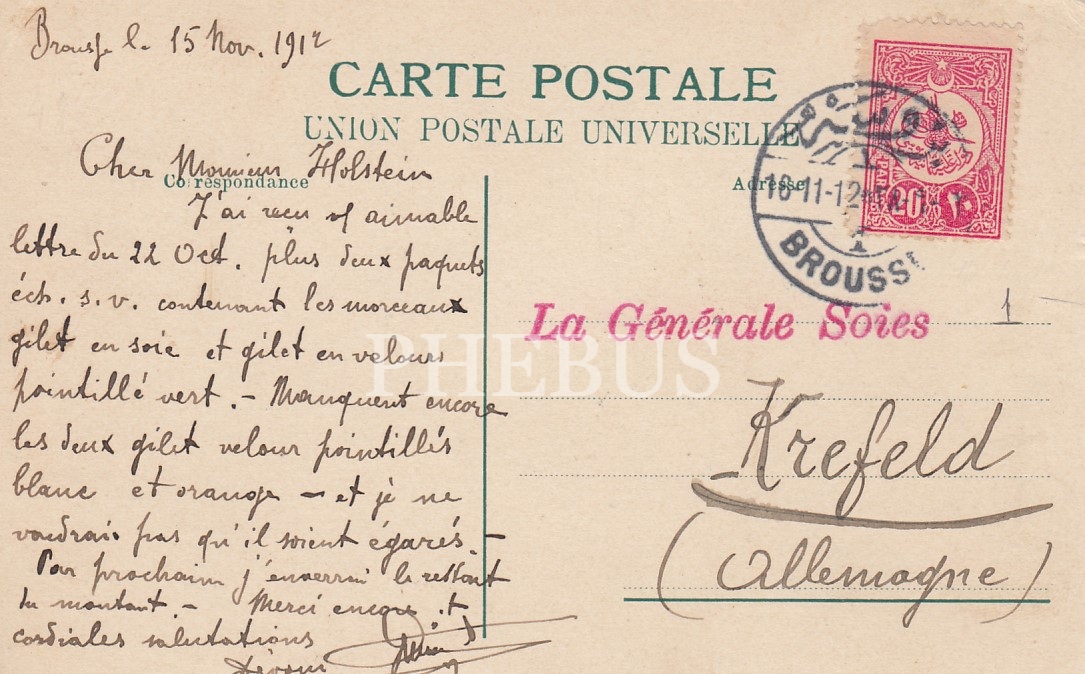 Brousse le 15 Nov. 1912
CARTE POSTALE
UNION POSTALE UNIVERSELLE
Correspondance
Adresse
Cher Monsieur Holstein
J'ai reçu v/ aimable
lettre du 22 Oct. plus deux paquets
éch. s.v. contenant les morceaux
gilet en soie et gilet en velours
pointillé vert. - Manquent encore
les deux gilet velour pointillés
blanc et orange - et je ne
voudrais pas qu'il soient égarés. -
Par prochain j'enverrai le restant
du montant - Merci encore et
cordiales salutations
PHEBUS
20 PARAS ٢٠
16-11-12
BROUSSE
1
La Générale Soies
1
Krefeld
(Allemagne)